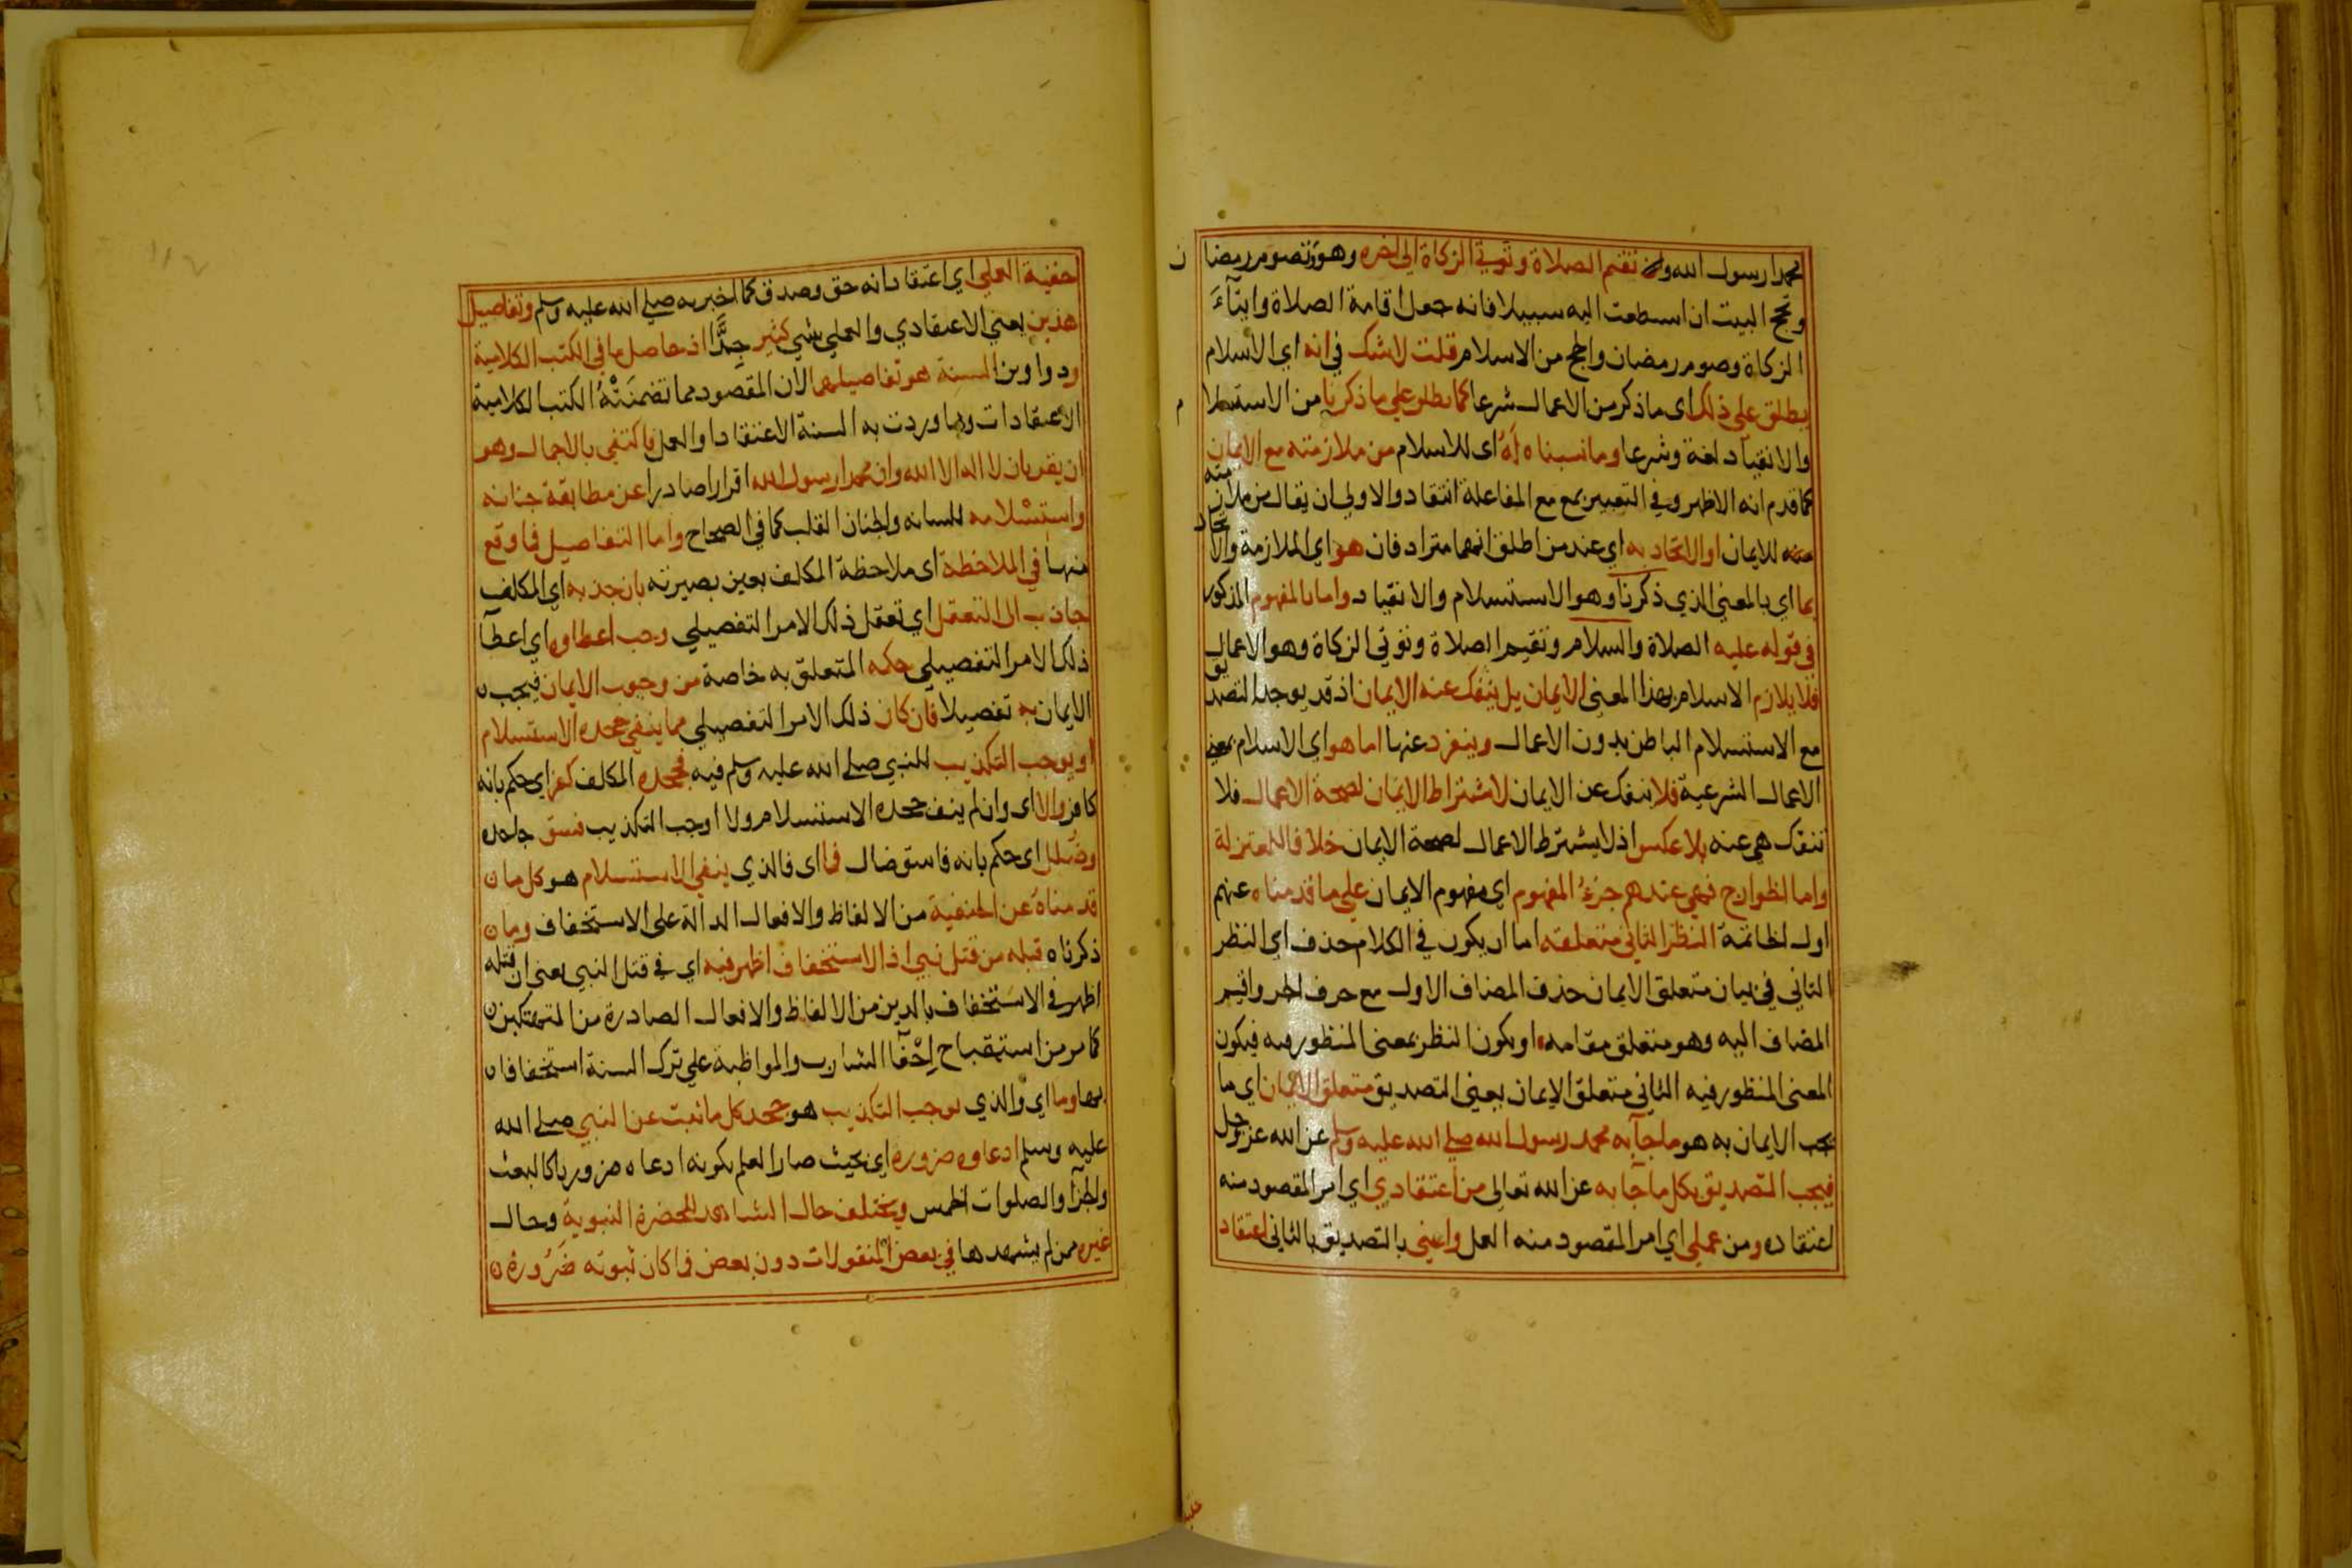 محمدا رسول الله وان تقيم الصلاة وتوتي الزكاة الى اخره وهو وتصوم رمضان
وتحج البيت ان استطعت اليه سبيلا فانه جعل اقامة الصلاة وايتآء
الزكاة وصوم رمضان والحج من الاسلام قلت لاشك في انه اي الاسلام
يطلق على ذلك اى ما ذكر من الاعمال شرعا كما يطلق على ما ذكرنا من الاستسلام
والانقياد لغة وشرعا وما نسبناه له اى للاسلام من ملازمته مع الايمان
كما قدم انه الاظهر وفي التعبير بمع مع المفاعلة انتقاد والاولى ان يقال من ملازمته
للايمان او الاتحاد به اي عند من اطلق انهما مترادفان هو اي الملازمة والاتحاد
بما اي بالمعنى الذي ذكرنا وهو الاستسلام والانقياد واما بالمفهوم المذكور
في قوله عليه الصلاة والسلام وتقيم الصلاة وتوتي الزكاة وهو الاعمال
فلا يلازم الاسلام بهذا المعنى الايمان بل ينفك عنه الايمان اذ قد يوجد التصديق
مع الاستسلام الباطن بدون الاعمال وينفرد عنها اما هو اي الاسلام بمعنى
الاعمال الشرعية فلا ينفك عن الايمان لاشتراط الايمان لصحة الاعمال فلا
تنفك هي عنه بلا عكس اذ لا يشترط الاعمال لصحة الايمان خلافا للمعتزلة
واما الخوارج فهي عندهم جزء المفهوم اي مفهوم الايمان على ما قدمناه عنهم
اول الخاتمة النظر الثاني متعلقه اما ان يكون في الكلام حذف اي النظر
الثاني في بيان متعلق الايمان حذف المضاف الاول مع حرف الجر واقيم
المضاف اليه وهو متعلق مقامه او يكون النظر بمعنى المنظور فيه فيكون
المعنى المنظور فيه الثاني متعلق الايمان يعني التصديق متعلق الايمان اي ما
يجب الايمان به هو ما جآ به محمد رسول الله صلى الله عليه وسلم عن الله عز وجل
فيجب التصديق بكل ما جآ به عن الله تعالى من اعتقادي اي امر المقصود منه
اعتقاده ومن عملي اي امر المقصود منه العمل واعني بالتصديق بالثاني اعتقاد
حقية العملي اي اعتقاد انه حق وصدق كما اخبر به صلى الله عليه وسلم وتفاصيل
هذين يعني الاعتقادي والعملي شي كثير جدًّا اذ حاصل ما في الكتب الكلامية
ودواوين السنة هو تفاصيلهما لان المقصود مما تضمنته الكتب الكلامية
الاعتقادات وما وردت به السنة الاعتقاد او العمل فاكتفى بالاجمال وهو
ان يقر بان لا اله الا الله وان محمدا رسول الله اقرارا صادرا عن مطابقة جنانه
واستسلامه للسانه والجنان القلب كما في الصحاح واما التفاصيل فما وقع
منها في الملاحظة اى ملاحظة المكلف بعين بصيرته بان جذبه اي المكلف
جاذب الى التعقل اي تعقل ذلك الامر التفصيلي وجب اعطاوه اي اعطآ
ذلك الامر التفصيلي حكمه المتعلق به خاصة من وجوب الايمان فيجب
الايمان به تفصيلا فان كان ذلك الامر التفصيلي مما ينفي جحده الاستسلام
او يوجب التكذيب للنبي صلى الله عليه وسلم فيه فجحده المكلف كفر اي حكم بانه
كافر والا اى وان لم ينف جحده الاستسلام ولا اوجب التكذيب فسق جاحده
وضلل اى حكم بانه فاسق ضال فما اى فالذي ينفي الاستسلام هو كل ما
قدمناه عن الحنفية من الالفاظ والافعال الدالة على الاستخفاف وما
ذكرناه قبله من قتل نبي اذ الاستخفاف اظهر فيه اي في قتل النبي يعني ان قتله
اظهر في الاستخفاف بالدين من الالفاظ والافعال الصادرة من المتهتكين
كما مر من استقباح احفآ الشارب والمواظبة على ترك السنة استخفافا
بها وما اي والذي يوجب التكذيب هو جحد كل ما ثبت عن النبي صلى الله
عليه وسلم ادعاوه ضرورة اي بحيث صار العلم بكونه ادعاه ضروريا كالبعث
والجزآ والصلوات الخمس ويختلف حال الشاهد للحضرة النبوية وحال
غيره ممن لم يشهدها في بعض المنقولات دون بعض فما كان ثبوته ضرورة